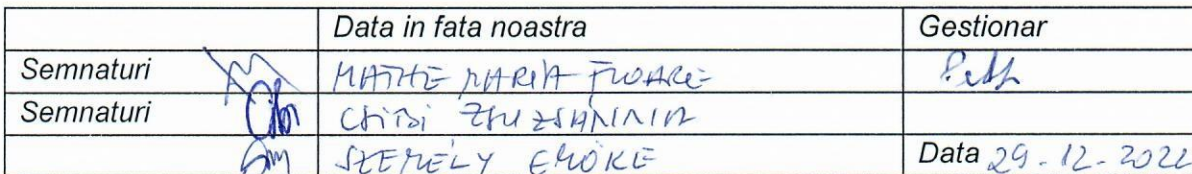 Data in fata noastra Gestionar
Semnaturi MATHE MARIA FLOARE
Semnaturi CSIBI ZSUZSANNA
SZEMÉLY EMŐKE Data 29-12-2022